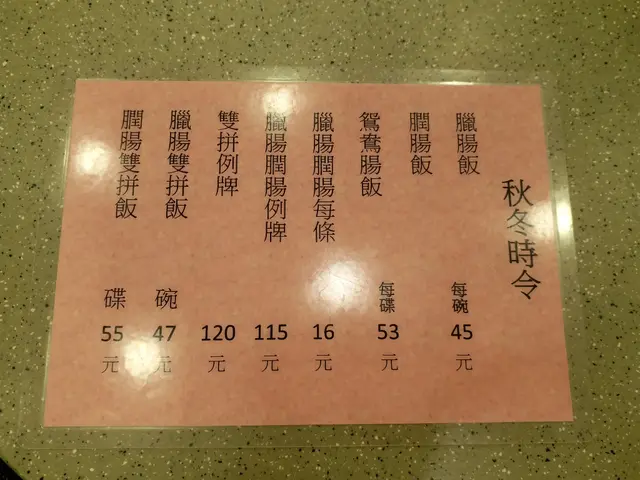 秋冬時令
臘腸飯
膶腸飯
每碗 45 元
鴛鴦腸飯
每碟 53 元
臘腸膶腸每條 16 元
臘腸膶腸例牌 115 元
雙拼例牌 120 元
臘腸雙拼飯 碗 47 元
膶腸雙拼飯 碟 55 元